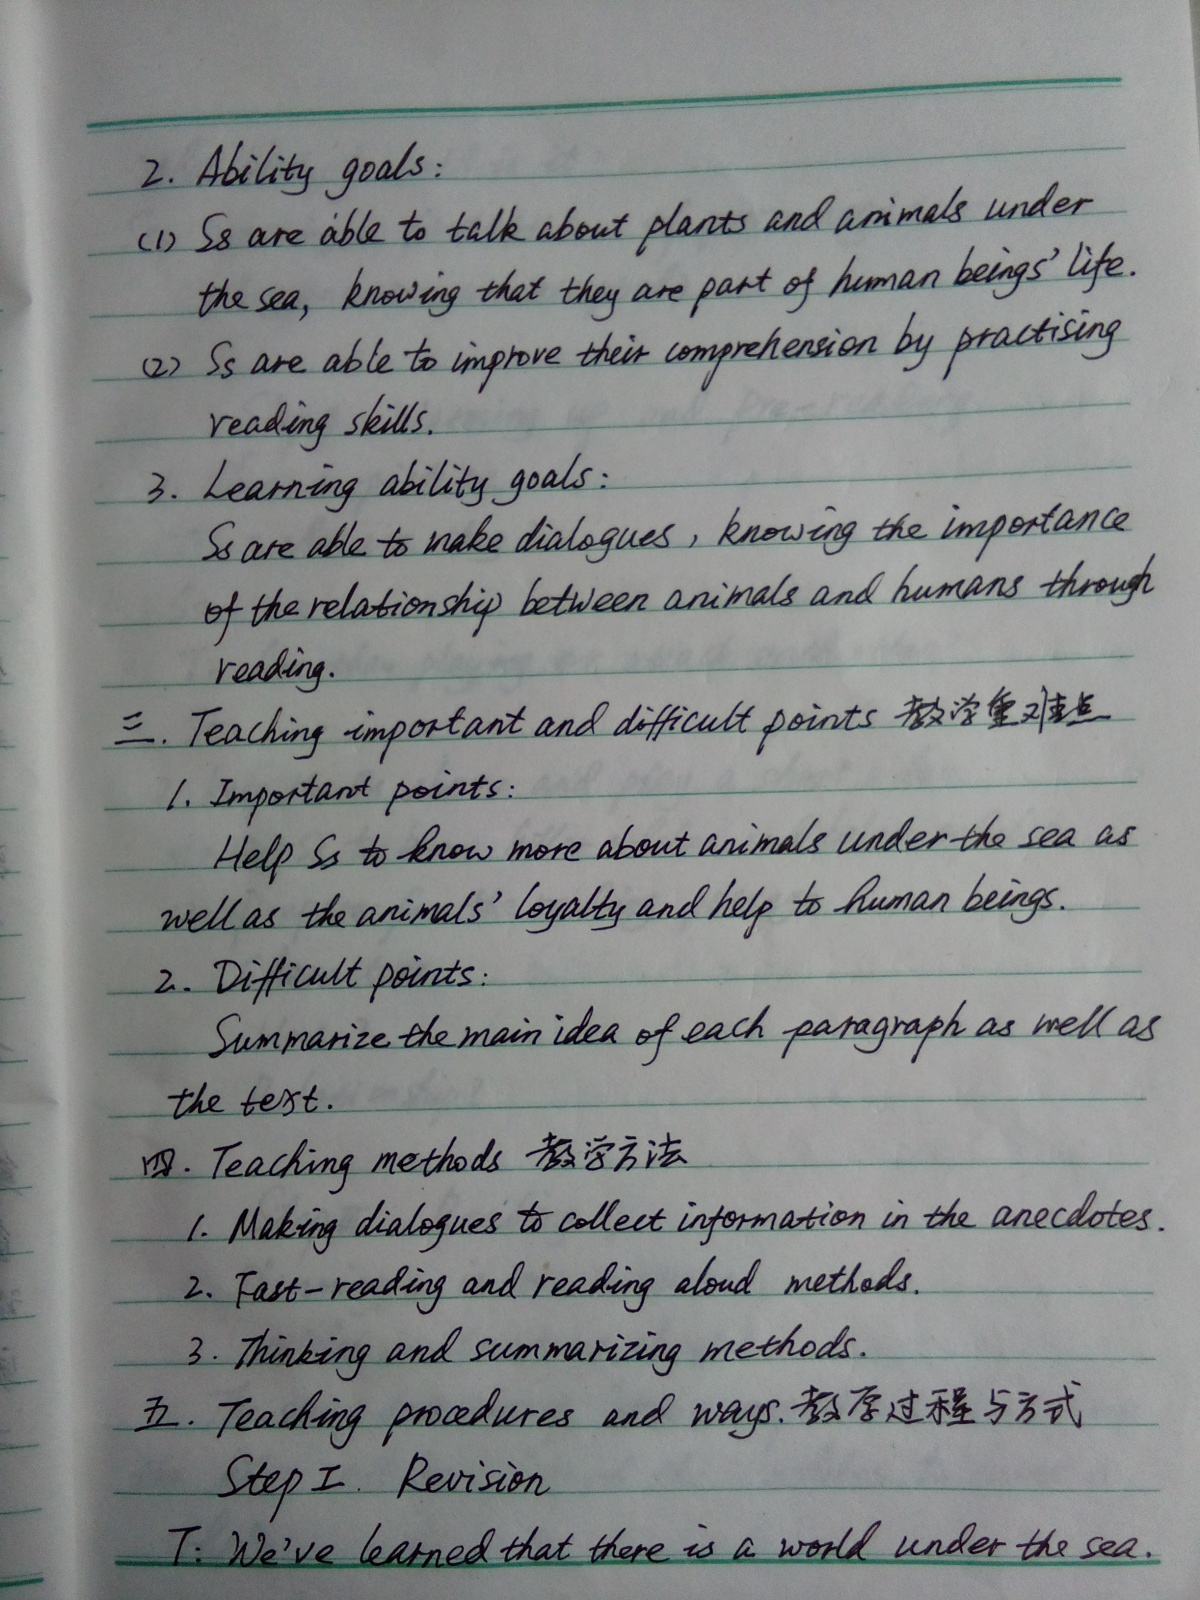 2. Ability goals:
(1) Ss are able to talk about plants and animals under
the sea, knowing that they are part of human beings' life.
(2) Ss are able to improve their comprehension by practising
reading skills.
3. Learning ability goals:
Ss are able to make dialogues, knowing the importance
of the relationship between animals and humans through
reading.
三. Teaching important and difficult points 教学重难点
1. Important points:
Help Ss to know more about animals under the sea as
well as the animals' loyalty and help to human beings.
2. Difficult points:
Summarize the main idea of each paragraph as well as
the text.
四. Teaching methods 教学方法
1. Making dialogues to collect information in the anecdotes.
2. Fast-reading and reading aloud methods.
3. Thinking and summarizing methods.
五. Teaching procedures and ways. 教学过程与方式
Step I. Revision
T: We've learned that there is a world under the sea.